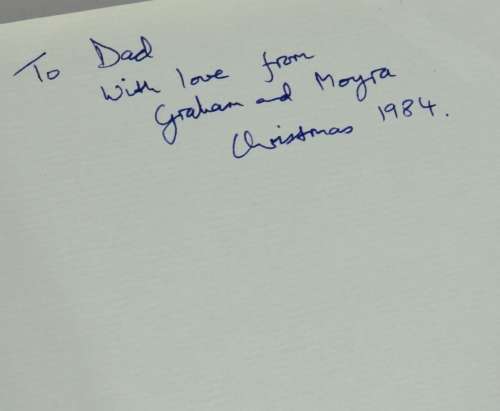 To Dad
With love from
Graham and Moyra
Christmas 1984.